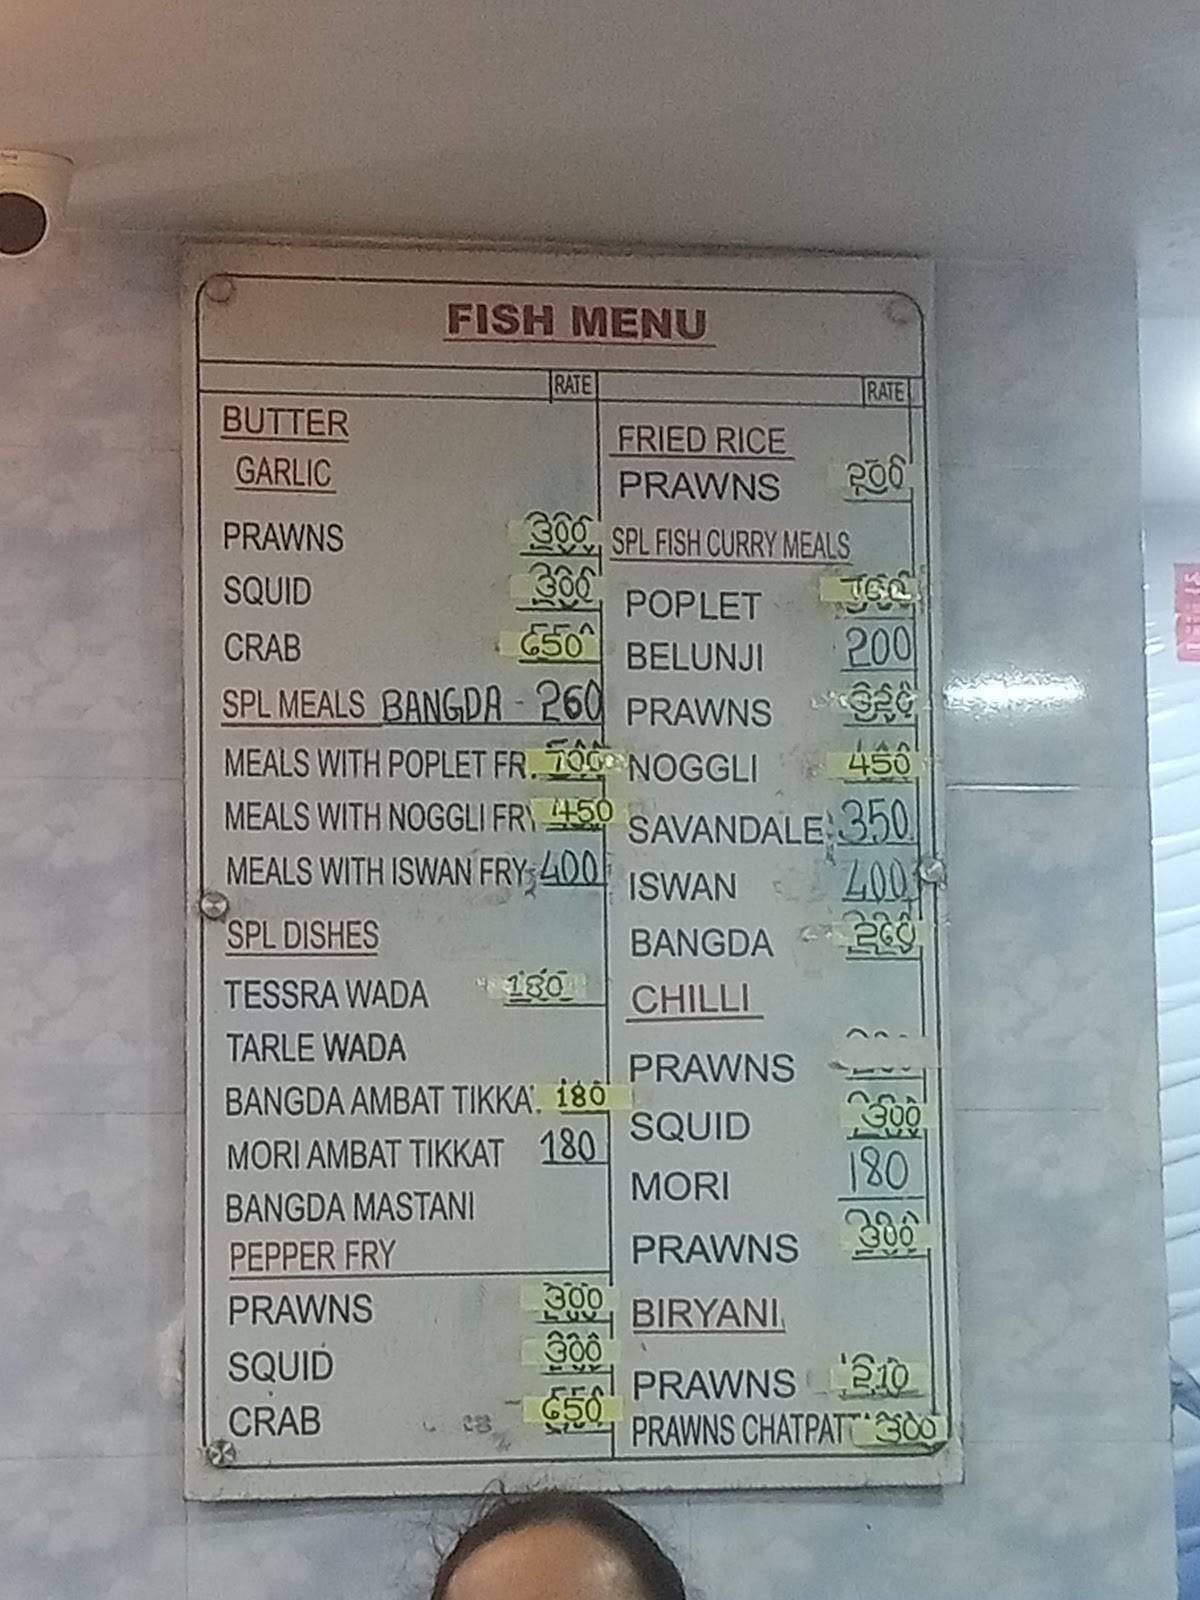 FISH MENU
RATE
BUTTER
GARLIC
PRAWNS 300
SQUID 300
CRAB 650
SPL MEALS BANGDA - 260
MEALS WITH POPLET FR 700
MEALS WITH NOGGLI FRY 450
MEALS WITH ISWAN FRY 400
SPL DISHES
TESSRA WADA 180
TARLE WADA
BANGDA AMBAT TIKKA 180
MORI AMBAT TIKKAT 180
BANGDA MASTANI
PEPPER FRY
PRAWNS 300
SQUID 300
CRAB 650
RATE
FRIED RICE
PRAWNS 200
SPL FISH CURRY MEALS
POPLET
BELUNJI 200
PRAWNS 320
NOGGLI 450
SAVANDALE 350
ISWAN 400
BANGDA 260
CHILLI
PRAWNS
SQUID 300
MORI 180
PRAWNS 300
BIRYANI
PRAWNS 210
PRAWNS CHATPAT 300